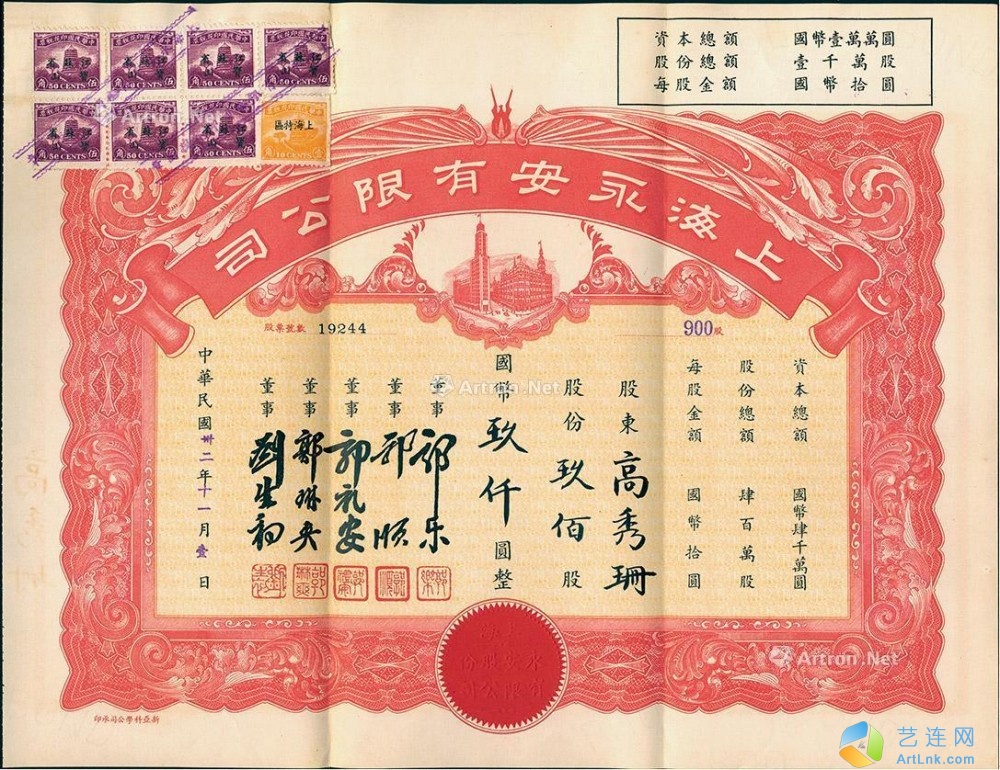 資本總額 國幣壹萬萬圓
股份總額 壹千萬股
每股金額 國幣拾圓
上海特區
50 CENTS
50 CENTS
50 CENTS
50 CENTS
50 CENTS
50 CENTS
50 CENTS
10 CENTS
上海永安有限公司
900股
股票號數 19244
資本總額 國幣肆千萬圓
股份總額 肆百萬股
每股金額 國幣拾圓
股東 高秀珊
股份玖佰股
國幣玖仟圓整
董事 郭乐
董事 郭順
董事 郭礼安
董事 郭琳爽
董事 劉生初
中華民國卅二年十一月壹日
永安股份
有限公司
新亞科學公司承印
Artron.Net
Artron.Net
Artron.Net
艺连网
ArtLnk.com